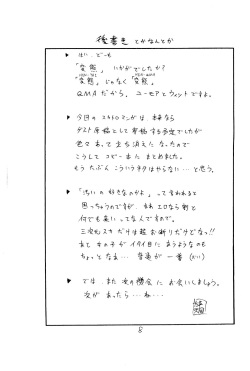 後書き とかなんとか
▶ はい、どーも
「変態」、いかがでしたか?
"変態"じゃなく"変態"。
QMAだから、ユーモアとウィットですよ。
▶ 今回のスカトロマンガは、本来なら
ゲスト原稿として寄稿する予定でしたが
色々あって立ち消えになったので
こうしてコピー本にまとめました。
もうたぶんこういうネタはやらない…と思う。
▶ 「汚いの好きなのかよ」って言われると
思っちゃうのですが、まあエロなら割と
何でも美味しいってなんですので。
三次元スカだけは超お断りだけどなっ!!
あと女の子がイタイ目にあうようなのも
ちょっとなぁ… 普通が一番(れい)
▶ では また次の機会にお会いしましょう。
次があったら…ね…
8